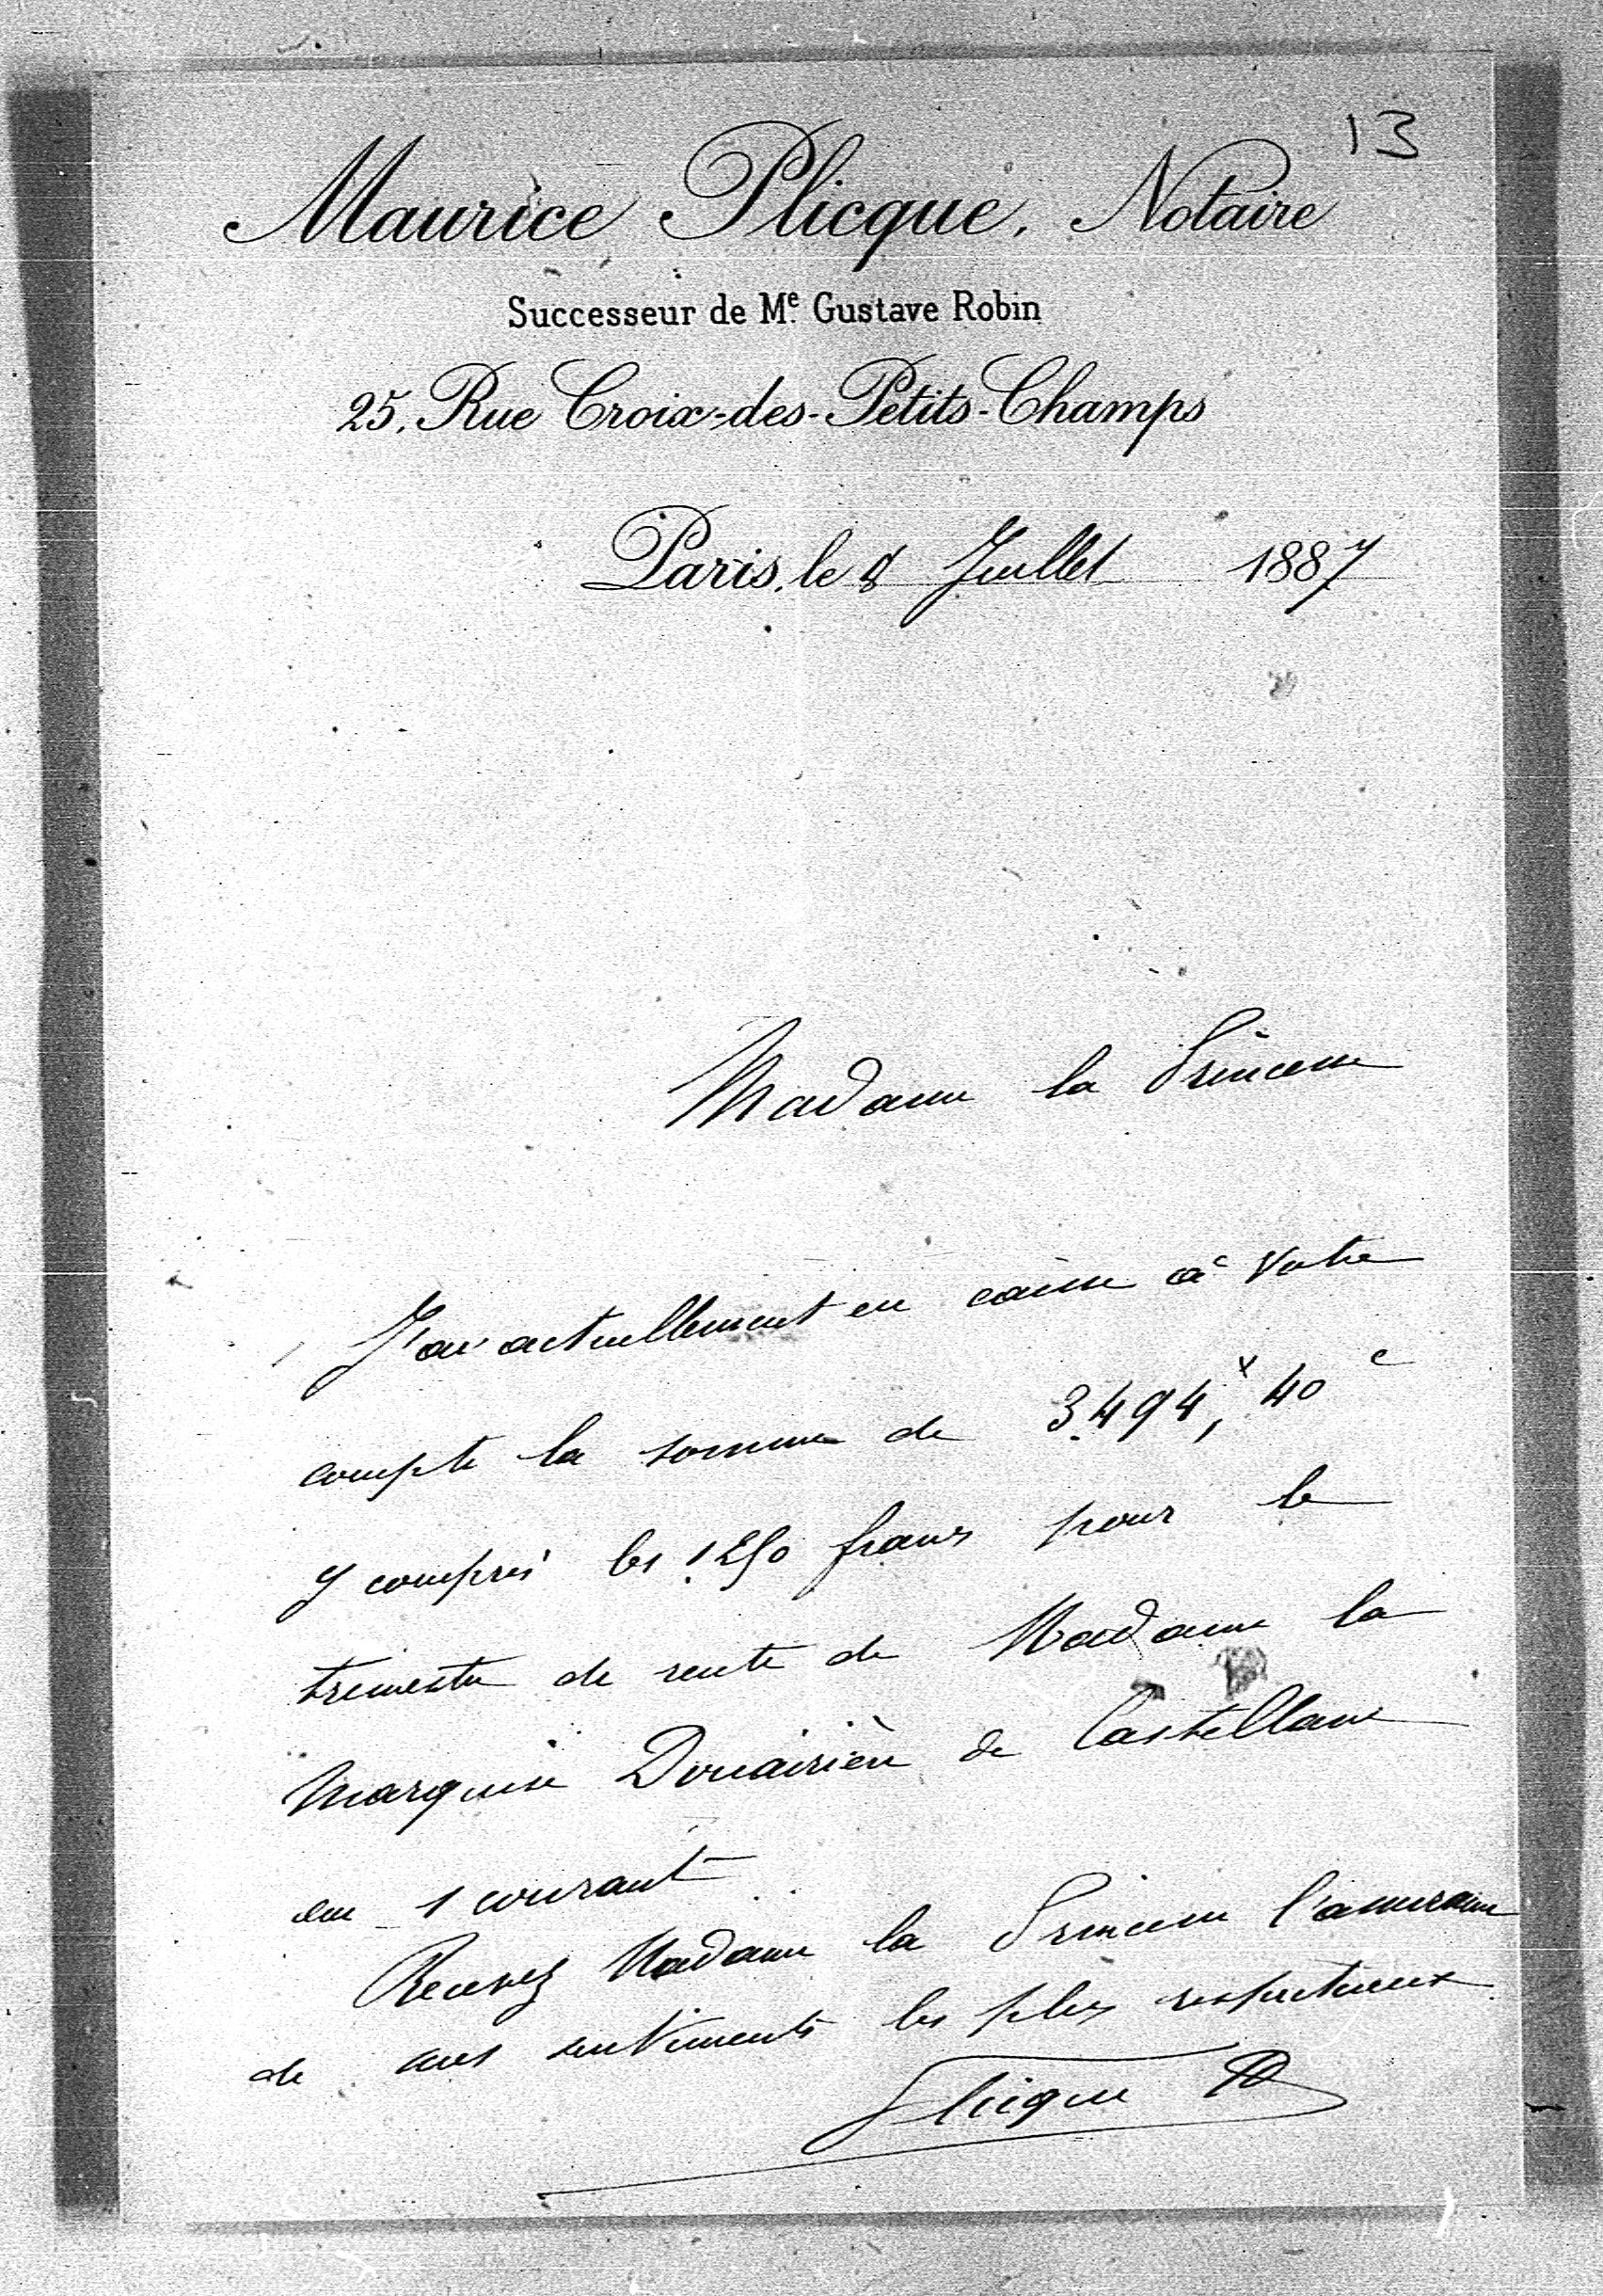 13
Maurice Plicque, Notaire
Successeur de Me. Gustave Robin
25, Rue Croix-des-Petits-Champs
Paris, le 8 Juillet 1887
Madame la Princesse
J'ai actuellement en caisse à votre
compte la somme de 3.494,f 40 c
y compris les 1.250 francs pour le
trimestre de rente de Madame la
Marquise Douairière de Castellane
au 1 courant
Recevez Madame la Princesse l'assurance
de mes sentiments les plus respectueux
Plicque